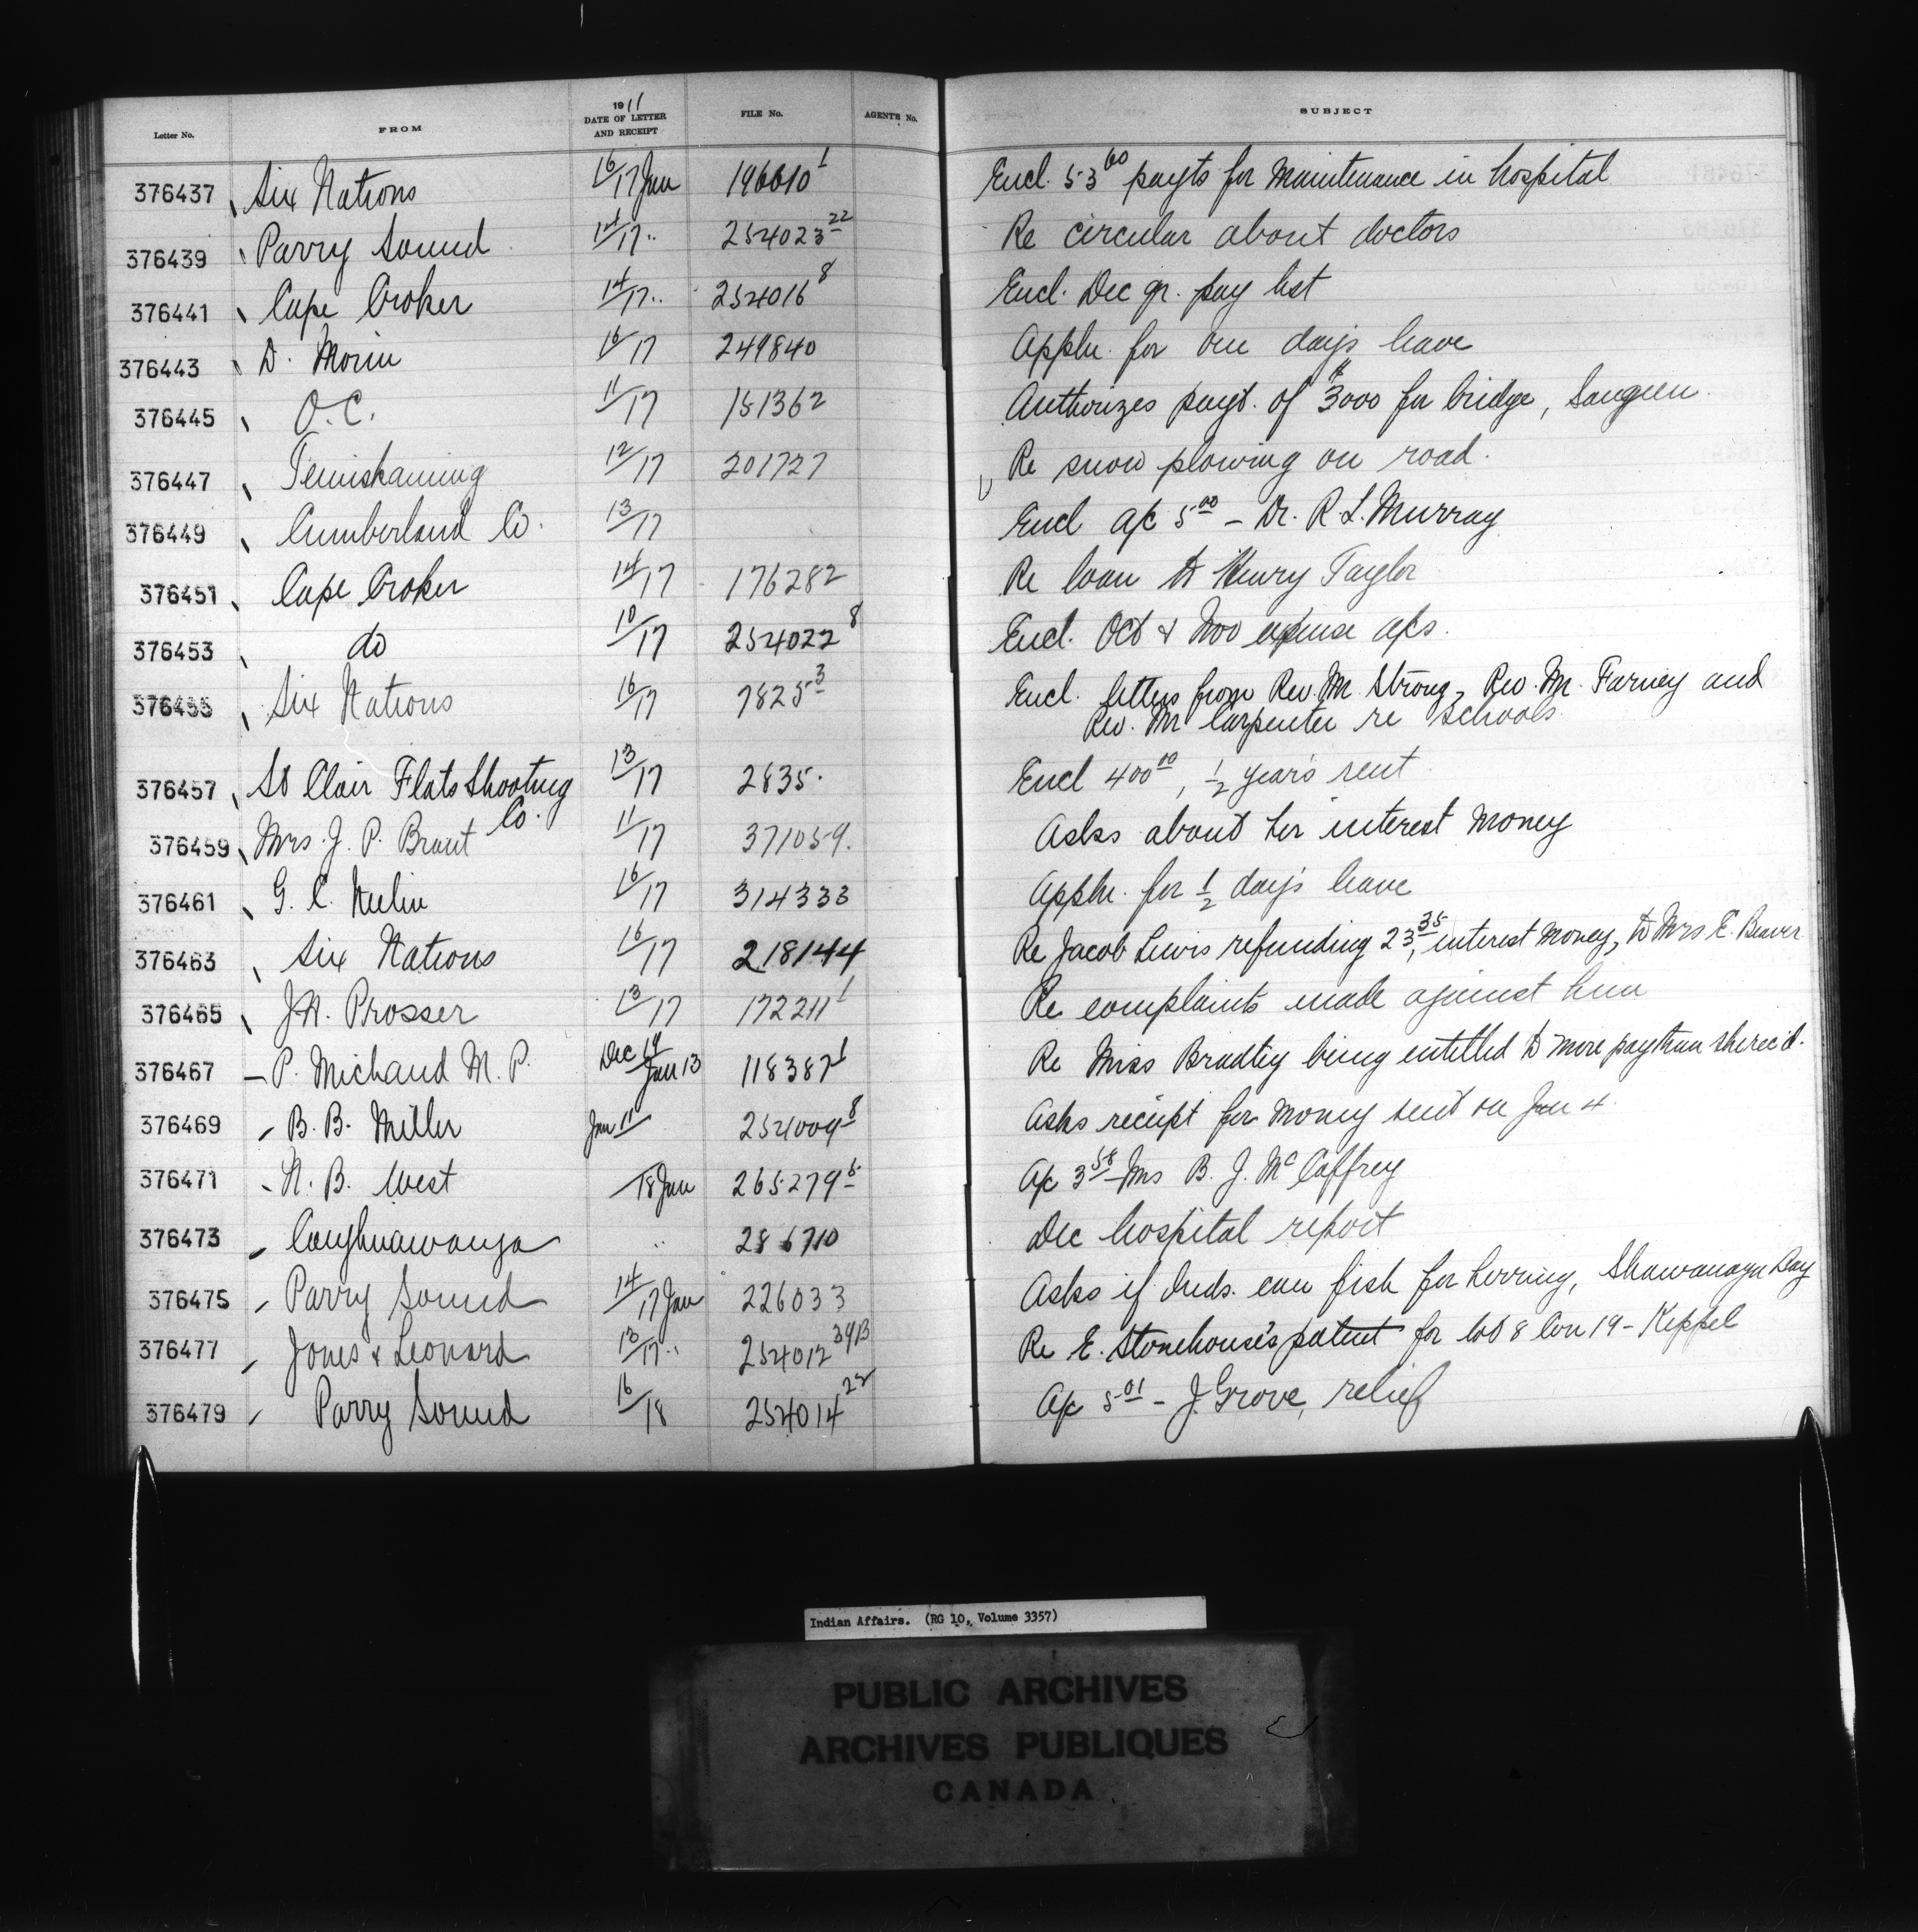 Letter No. FROM 1911 DATE OF LETTER AND RECEIPT FILE No. AGENTS No. SUBJECT
376437 Six Nations 16/17 Jan 196610 1 Encl. 53 60 payts for Maintenance in hospital
376439 Parry Sound 14/17 " 254023 22 Re circular about doctors
376441 Cape Croker 14/17 " 254016 8 Encl. Dec qr. pay list
376443 D. Morin 16/17 249840 Appln. for one days leave
376445 O.C. 11/17 151362 Authorizes payt. of $3000 for bridge, Saugeen
376447 Temiskaming 12/17 201727 Re snow plowing on road.
376449 Cumberland Co. 13/17 Encl a/c 5 00 - Dr. R. L. Murray
376451 Cape Croker 14/17 176282 Re loan to Henry Taylor
376453 do 10/17 254022 8 Encl. Oct & Nov expense a/cs.
376455 Six Nations 16/17 7825 3 Encl. letters from Rev. Mr. Strong, Rev. Mr. Farney and
Rev. Mr Carpenter re schools
376457 St Clair Flats Shooting Co. 13/17 2835. Encl 400 00, 1/2 year's rent
376459 Mrs. J. P. Brant 11/17 371059. Asks about her interest money
376461 G. C. 16/17 314333 Appln. for 1/2 day's leave
376463 Six Nations 16/17 218144 Re Jacob Lewis refunding 23 35, interest money, to Mrs E. Beaver
376465 J.H. Prosser 13/17 172211 1 Re complaints made against him
376467 P. Michaud M. P. Dec 19 Jan 13 118387 1 Re Miss Bradley being entitled to more pay than she rec'd.
376469 B. B. Miller Jan 11 254009 8 Asks receipt for money sent on Jan 4.
376471 N. B. West /18 Jan 265279 5 A/c 3 58 - Mrs B. J. McCaffrey
376473 Caughnawauga " 286710 Dec hospital report
376475 Parry Sound 14/17 Jan 226033 Asks if Inds. can fish for herring, Shawanaga Bay
376477 Jones & Leonard 13/17 " 254012 3913 Re E. Stonehouse's patent for lot 8 Con 19 - Keppel
376479 Parry Sound 16/18 254014 22 A/c 5 01 - J. Grove, relief
Indian Affairs. (RG 10, Volume 3357)
PUBLIC ARCHIVES
ARCHIVES PUBLIQUES
CANADA